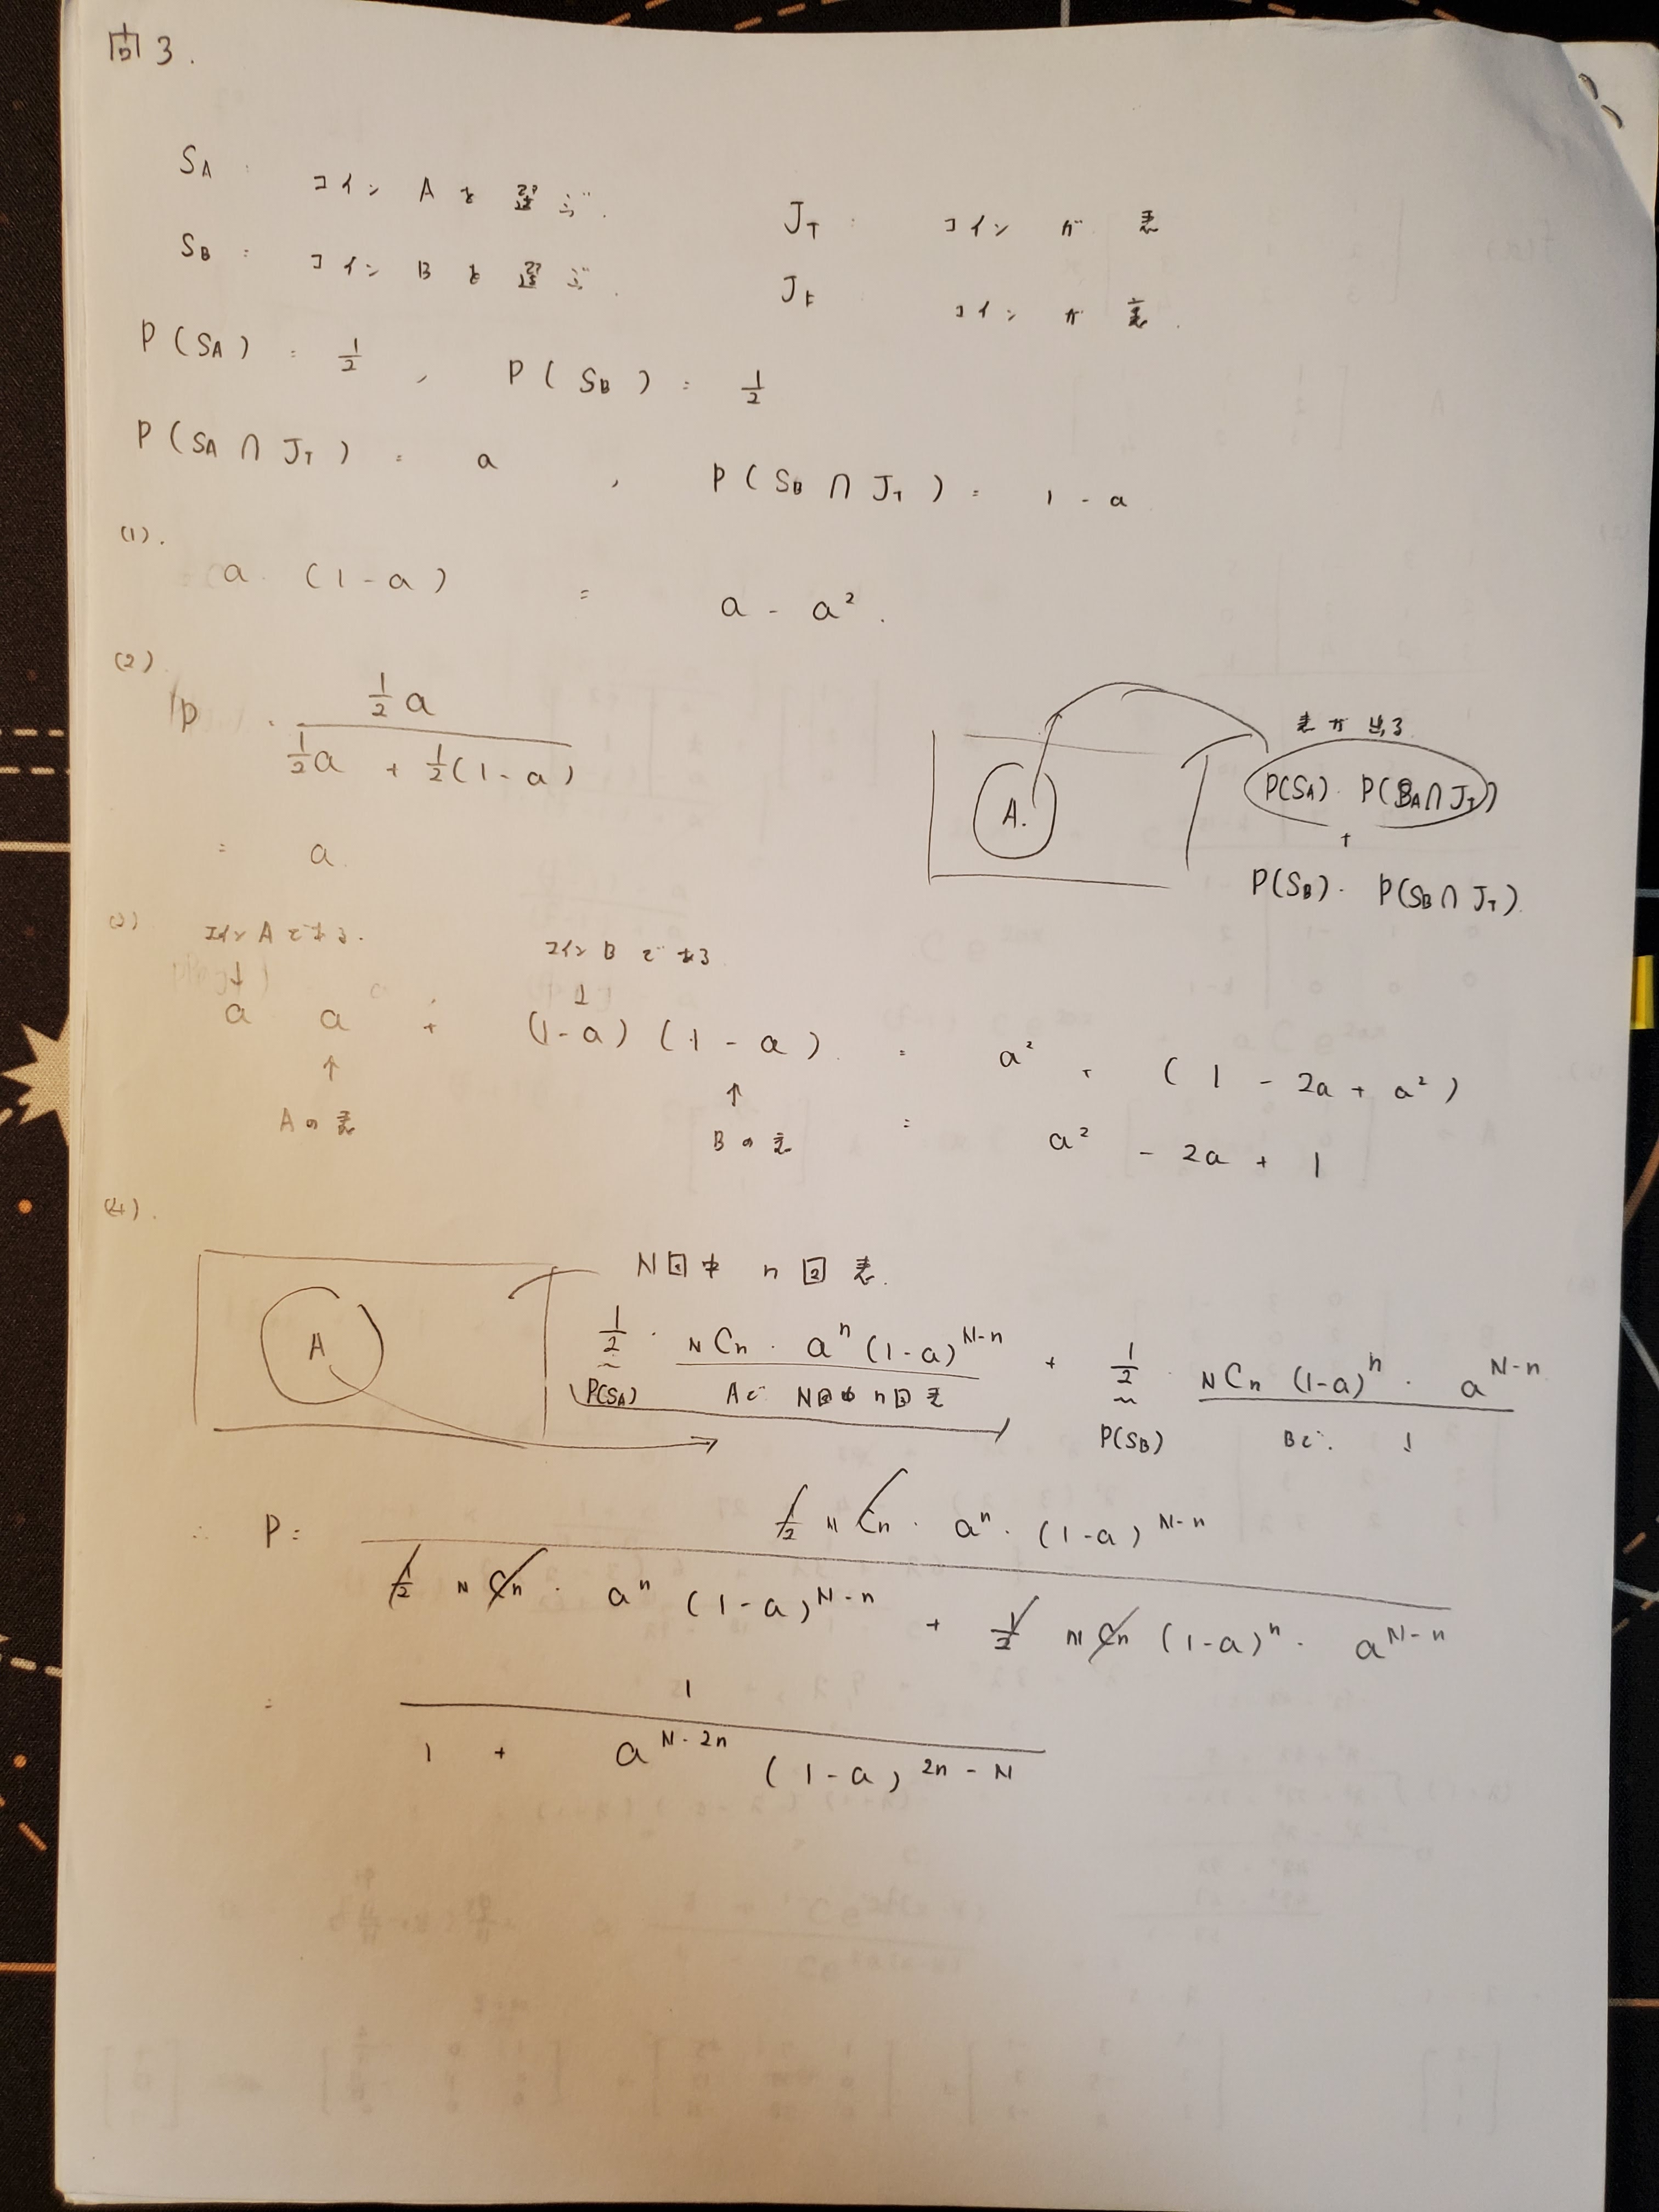 問 3.
S_A : コイン A を 選ぶ.
J_T : コイン が 表
S_B : コイン B を 選ぶ.
J_F コイン が 裏.
P(S_A) = 1/2 , P(S_B) = 1/2
P(S_A ∩ J_T) = a , P(S_B ∩ J_T) = 1 - a
(1).
a · (1-a) = a - a².
(2)
P = (1/2 a) / (1/2 a + 1/2 (1-a))
= a.
A.
表が出る
P(S_A) · P(S_A ∩ J_T)
+
P(S_B) · P(S_B ∩ J_T)
(3)
コイン A である. コイン B である
↓ ↓
a a + (1-a) (1-a) = a² + (1 - 2a + a²)
↑ ↑
A の 表 B の 表
= a² - 2a + 1
(4).
N回中 n 回 表.
A
1/2 · NCn · a^n (1-a)^(N-n) + 1/2 · NCn (1-a)^n · a^(N-n)
P(S_A) Aで N回中 n回 表 P(S_B) Bで
∴ P = (1/2 NCn · a^n · (1-a)^(N-n)) / (1/2 NCn · a^n (1-a)^(N-n) + 1/2 NCn (1-a)^n · a^(N-n))
= 1 / (1 + a^(N-2n) (1-a)^(2n-N))